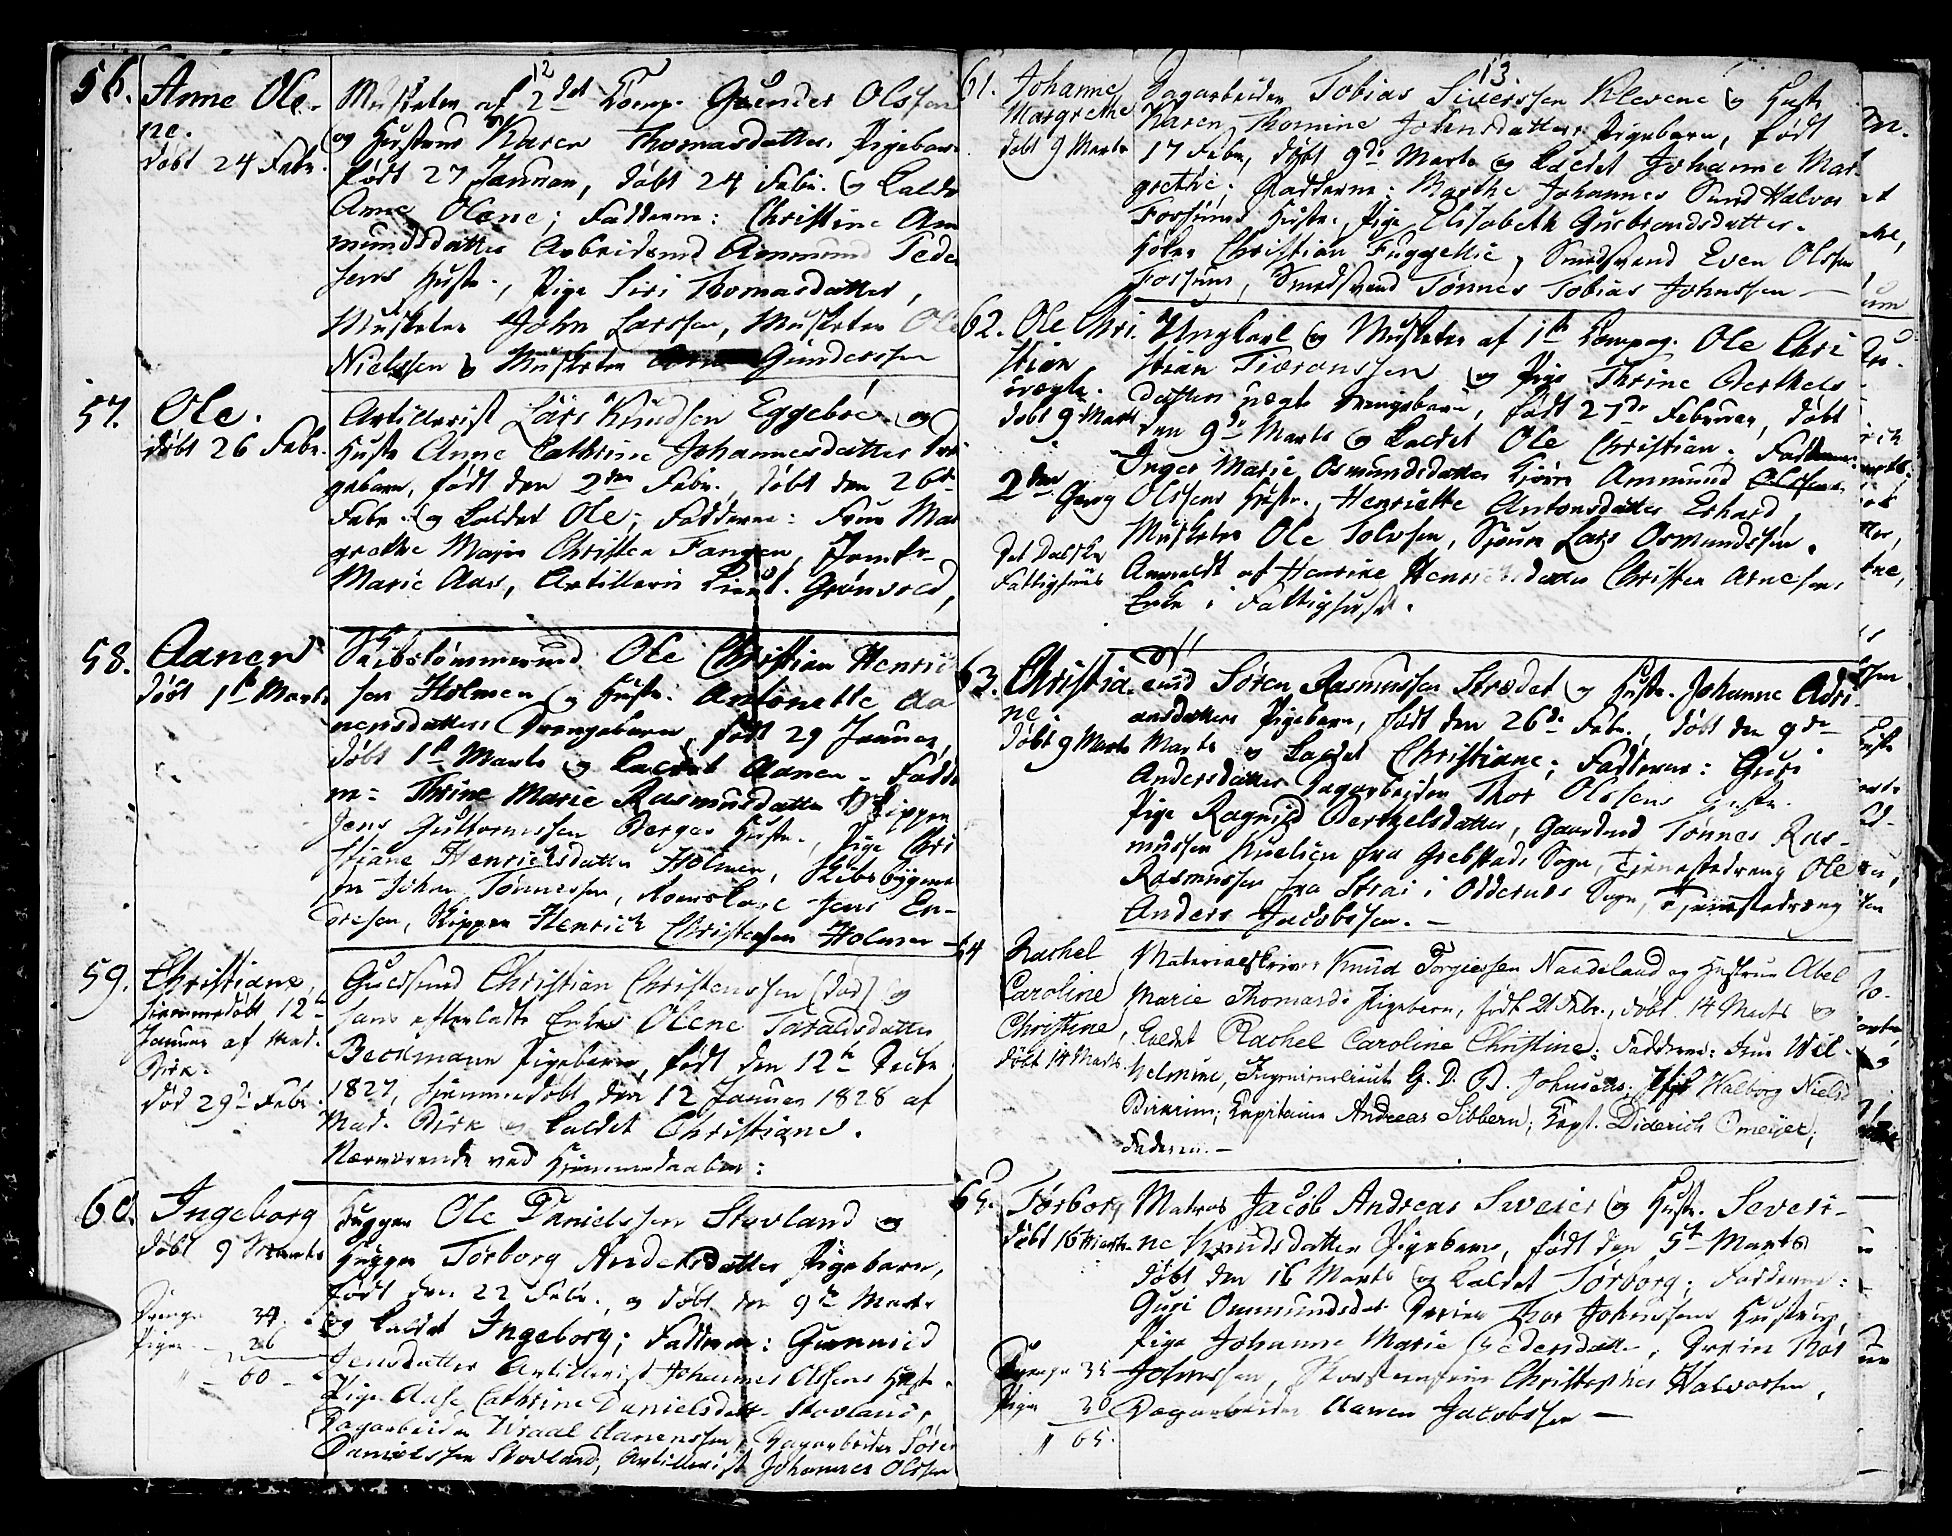 12
56. Anne Ole-
ne.
døbt 24 Febr.
Musketer af 2det Comp. Gunder Olssen
og Hustrue Karen Thomasdatters Pigebarn
født 27 Januar, døbt 24 Febr. og kaldt
Anne Olene; Fadderne: Christine Am
mundsdatter Arbeidsmd Ammund Peder
sens Hustr., Pige Siri Thomasdatter,
Musketer John Larssen, Musketer Ole
Nielssen og Musketer Gunderssen
57. Ole.
døbt 26 Febr.
Artillerist Lars Knudsen Eggebøe og
Hustr Anne Cathrine Johannesdatters Dren
gebarn, født den 2den Febr., døbt den 26de
Febr. og kaldet Ole; Fadderne: Frue Mar
grethe Marie Christen Fangen, Jomfr.
Marie Aas, Artilleri Lieut. Grønvold,
58. Aanen
døbt 1te Marts
Skibstømmermd Ole Christian Henrik
sen Holmen og Hustr. Antonette Aa
nensdatters Drengebarn, født 29 Januar,
døbt 1te Marts og kaldet Aanen. Fadde
rn: Thrine Marie Rasmusdatter Skipper
Jens Guttormssen Berges Hustr., Pige Chri
stiane Henrichsdatter Holmen, Skibsbygme
ster Johan Tønnessen, Jens En-
gresen, Skipper Henrich Christensen Holmen
59. Christiane,
hjemmedøbt 12te
Januar af Mad.
Birk.
død 29de Febr.
Guldsmd Christian Christenssen (død) og
hans efterladte Enke Olene Taraldsdatter
Beckmann Pigebarn, født den 12te Decbr
1827, hjemmedøbt den 12 Januar 1828 af
Mad. Birk og kaldet Christiane.
Nærværende ved Hjemmedaaben:
60. Ingeborg
døbt 9 Marts
Drenge 34.
Piger 26
" - 60 -
Hugger Ole Danielssen Stovland og
Hustr Torborg Andersdatters Pigebarn,
født den 22 Febr., og døbt den 9de Marts
og kaldet Ingeborg; Fadderne: Gunnild
Jensdatter Artillerist Johannes Olssens Hustr.
Pige Aase Cathrine Danielsdatter Stovland,
Dagarbeider Wraal Aanenssen, Dagarbeider Søren
Danielssen Stovland, Artillerist Johannes Olssen
13
61. Johanne
Margrethe
døbt 9 Marts
Dagarbeider Tobias Siverssen Klevene og Hustr
Karen Thomine Johnsdatters Pigebarn, født
17 Febr., døbt 9de Marts og kaldet Johanne Mar
grethe. Fadderne: Marthe Johannes Sund Halvor
Fossums Hustr., Pige Elisabeth Gusbrandsdatter.
Christian Fuggellie, Smedsvend Even Olssen
Fossum, Smedsvend Tønnes Tobias Johnssen —
62. Ole Chri
stian
uægte.
døbt 9 Marts
2den
Gang
Det Dalske
Fattighuus
Ungkarl og Musketer af 1te Compag. Ole Chri
stian Tieransen og Pige Thrine Berthels
datters uægte Drengebarn, født 27de Februar, døbt
den 9de Marts og kaldet Ole Christian. Fadderne:
Inger Marie Osmundsdatter Ammund Olssens
Olssens Hustr., Henriette Antonsdatter Erhard,
Musketer Ole Tolvsen, Lars Osmundssen.
Anmeldt af Henrine Henrichsdatter Christen Arnesens
Enke i Fattighuset.
63. Christia
ne
døbt 9 Marts
Søren Rasmussen Strædet og Hustr. Johanne Adri
ansdatters Pigebarn, født den 26de Febr., døbt den 9de
Marts og kaldet Christiane; Fadderne: Guri
Andersdatter Dagarbeider Thor Olssens Hustr.
Pige Ragnild Berthelsdatter, Gaardmd Tønnes Ras-
mussen Kuelien fra Grebstads Sogn, Tjenestedreng Ole
Rasmussen fra Strai i Oddernes Sogn, Tjenestedreng
Anders Jacobssen. —
64 Rachel
Caroline
Christine,
døbt 14 Marts
Materialskriver Knud Torgiersen Naadeland og Hustrue Abel
Marie Thomasd. Pigebarn, født 21 Febr., døbt 14 Marts og
kaldet Rachel Caroline Christine; Fadderne: Frue Wil-
helmine, Ingenieurlieut. G. D. B. Johnsens; Pige Walborg Niels
Birkrim; Capitaine Andreas Sibbern; Capt. Diderich Omeyer;
Faderen. —
65. Torborg
døbt 16 Marts
Drenge 35
Piger 30
" 65.
Matros Jacob Andreas Sweier og Hustr. Severi-
ne Knudsdatters Pigebarn, født den 5te Marts
døbt den 16 Marts og kaldet Torborg; Fadderne:
Guri Ommundsdat. Thor Johnssens Hustrue,
Pige Johanne Marie Pedersdatter, Thor
Johnssen, Christopher Halvorsen,
Dagarbeider Aanen Jacobssen —